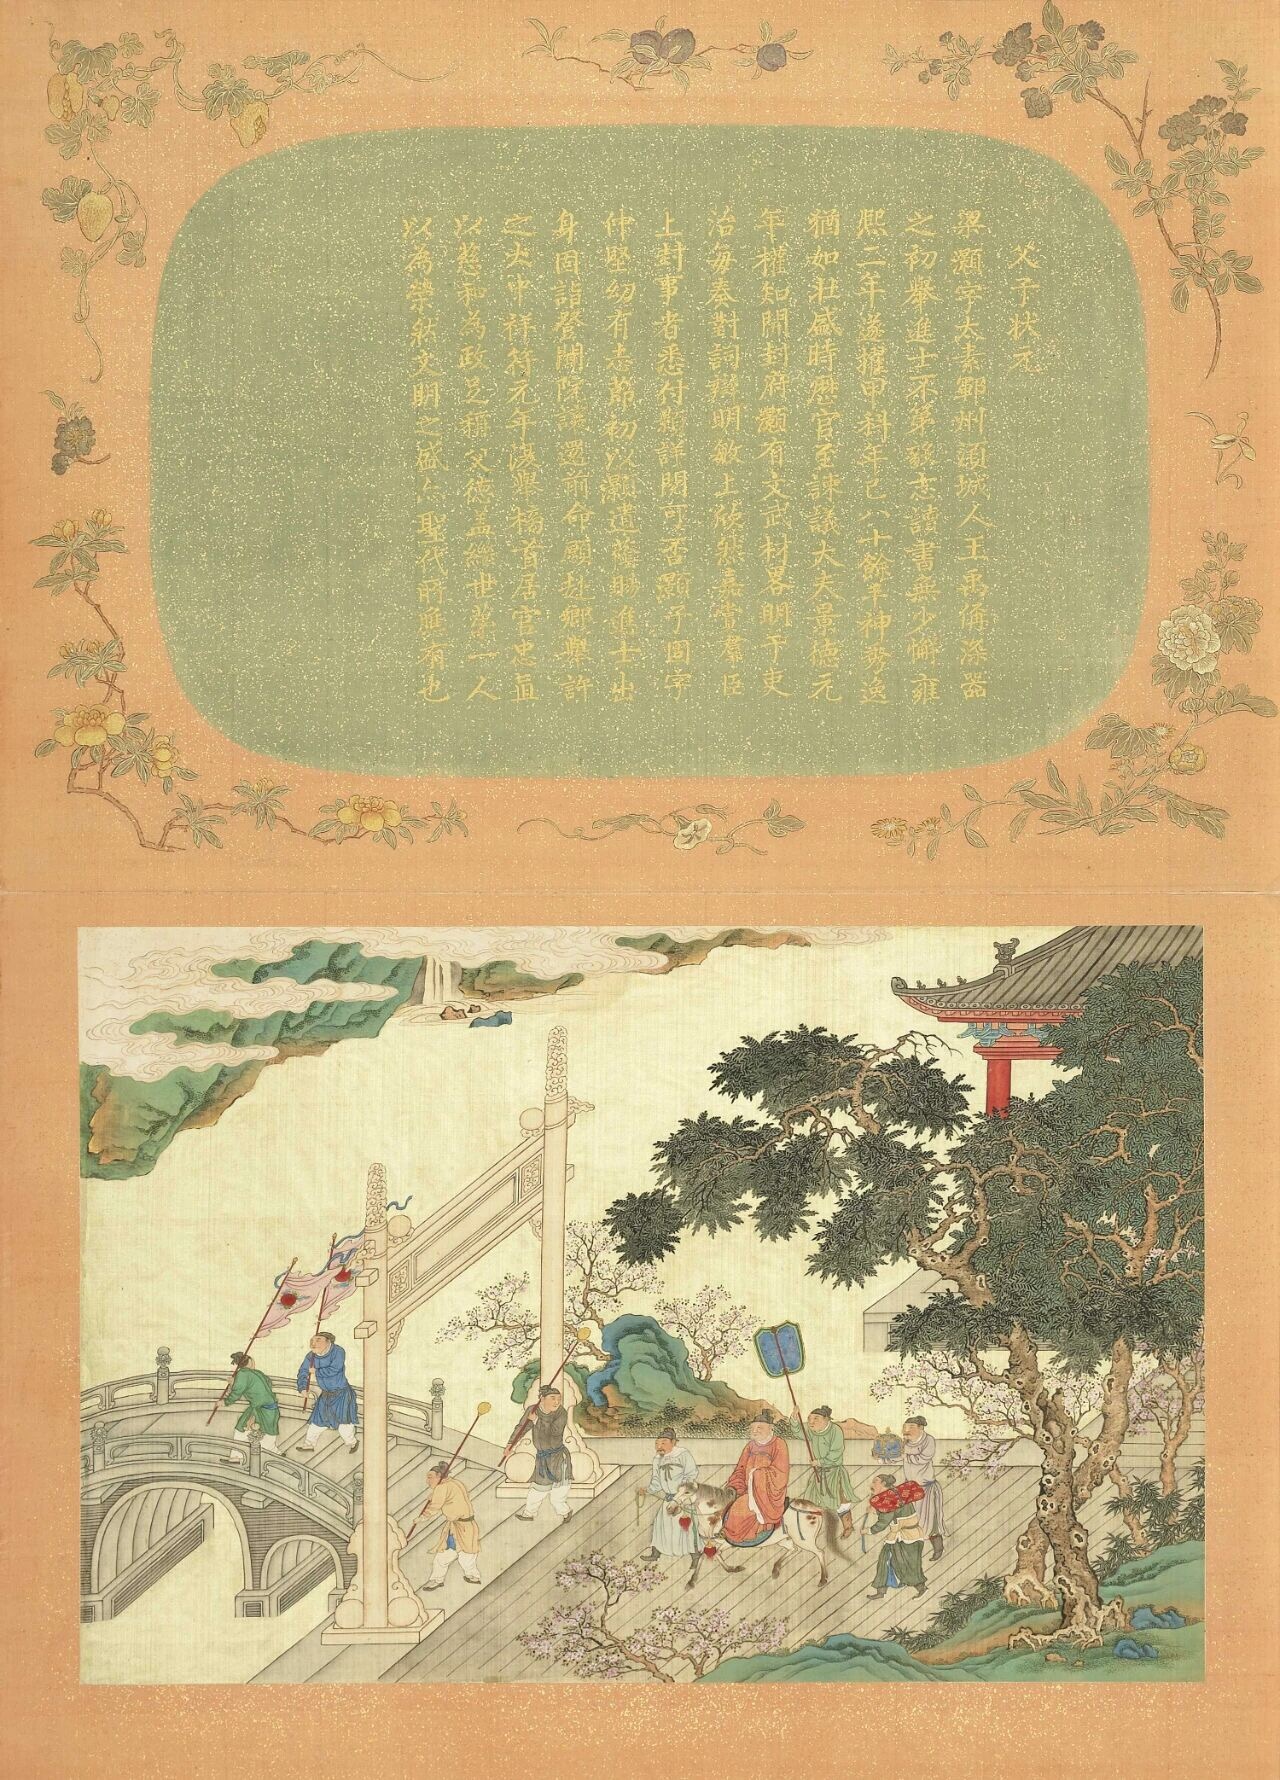 父子狀元
梁灝字太素鄆州須城人王禹偁深器
之初舉進士不第發志讀書無少懈雍
熙二年遂擢甲科年已八十餘平神秀逸
猶如壯盛時歷官至諫議大夫景德元
年權知開封府灝有文武材畧明于吏
治每奏對詞辯明敏上欣然嘉賞群臣
上封事者悉付灝詳閱可否灝子固字
仲堅幼有志節初以灝遺蔭賜進士出
身固詣登聞院讓還前命願赴鄉舉許
之大中祥符元年復舉榜首居官忠直
以慈和為政足稱父德蓋繼世第一人
以為榮然文明之盛亦聖代所僅有也